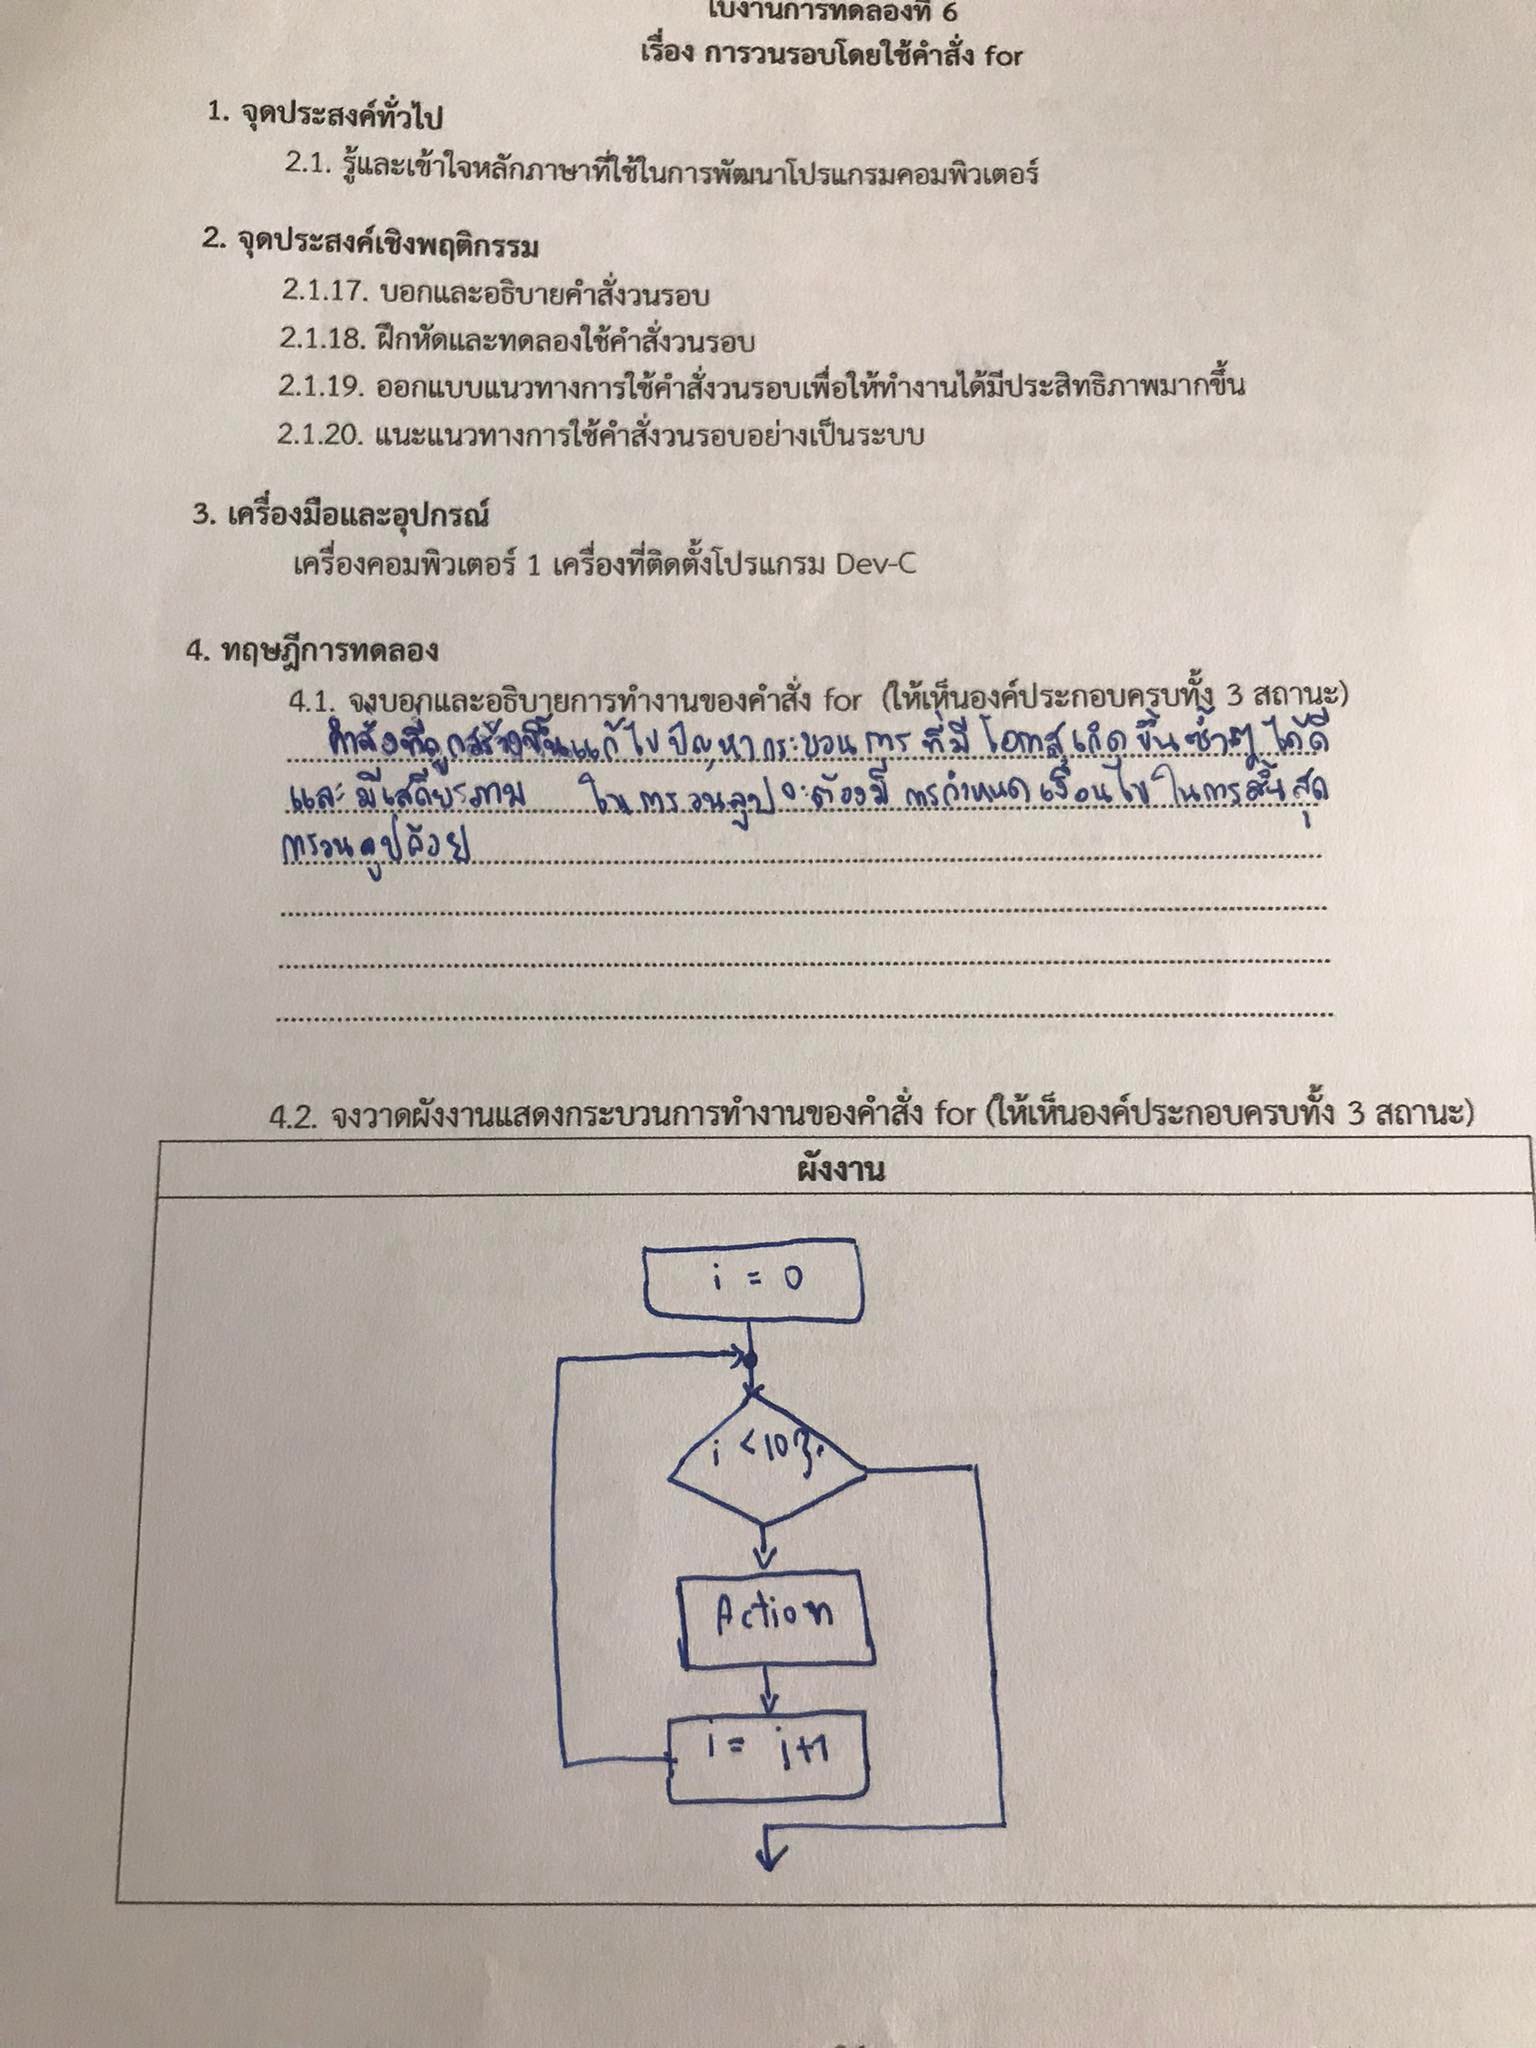 ใบงานการทดลองที่ 6
เรื่อง การวนรอบโดยใช้คำสั่ง for
1. จุดประสงค์ทั่วไป
2.1. รู้และเข้าใจหลักภาษาที่ใช้ในการพัฒนาโปรแกรมคอมพิวเตอร์
2. จุดประสงค์เชิงพฤติกรรม
2.1.17. บอกและอธิบายคำสั่งวนรอบ
2.1.18. ฝึกหัดและทดลองใช้คำสั่งวนรอบ
2.1.19. ออกแบบแนวทางการใช้คำสั่งวนรอบเพื่อให้ทำงานได้มีประสิทธิภาพมากขึ้น
2.1.20. แนะแนวทางการใช้คำสั่งวนรอบอย่างเป็นระบบ
3. เครื่องมือและอุปกรณ์
เครื่องคอมพิวเตอร์ 1 เครื่องที่ติดตั้งโปรแกรม Dev-C
4. ทฤษฎีการทดลอง
4.1. จงบอกและอธิบายการทำงานของคำสั่ง for (ให้เห็นองค์ประกอบครบทั้ง 3 สถานะ)
คำสั่งที่ถูกสร้างขึ้นแก้ไขปัญหากระบวนการที่มีโอกาสเกิดขึ้นซ้ำๆได้ดี
และมีเสถียรภาพ ในการวนลูปจะต้องมีการกำหนดเงื่อนไขในการสิ้นสุด
การวนลูปด้วย
4.2. จงวาดผังงานแสดงกระบวนการทำงานของคำสั่ง for (ให้เห็นองค์ประกอบครบทั้ง 3 สถานะ)
ผังงาน
i = 0
i < 10
Action
i = i+1